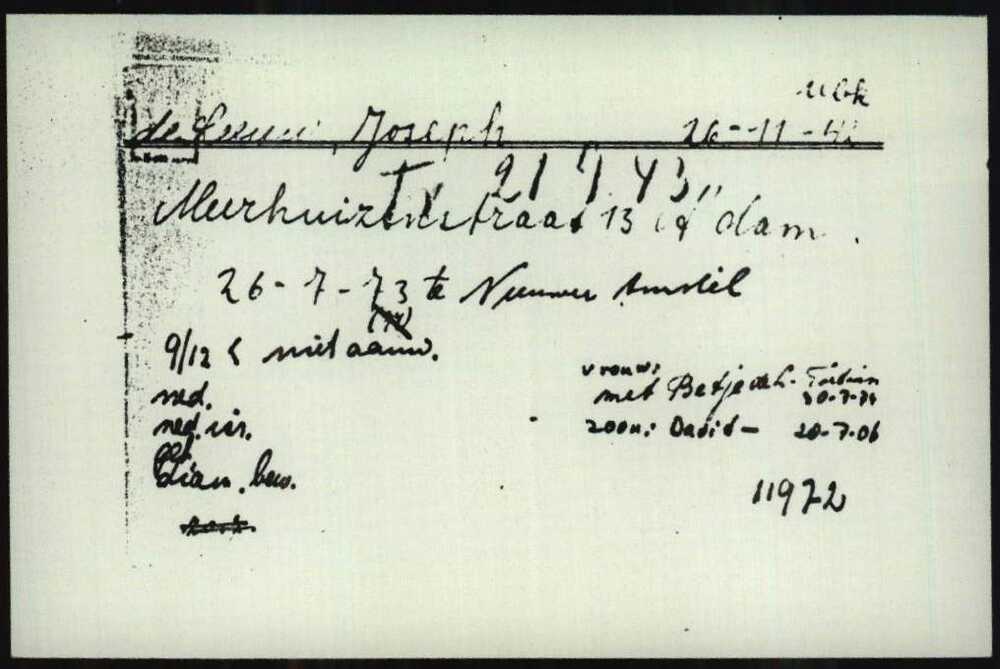 de Leeuw, Joseph 26-11-42
T. 21 7 43
Meerhuizenstraat 13 A'dam.
26-7-73 te Nieuwer Amstel
9/12 niet aanw.
vrouw:
ned. met Betje de L.
ned. isr. zoon: David - 20-7-06
Diam. bew.
11972